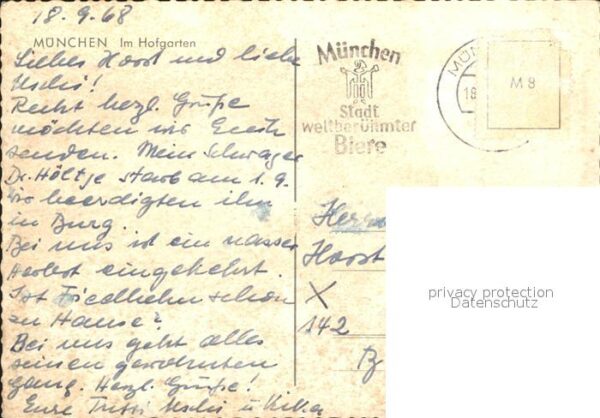 18.9.68
MÜNCHEN Im Hofgarten
Liebes Horst und liebe
Uschi!
Recht herzl. Grüße
möchten wir Euch
senden. Mein Schwager
Dr. Höltje starb am 1.9.
Wir beerdigten ihn
in Burg.
Bei uns ist ein nasser
Herbst eingekehrt.
Ist Friedhelm schon
zu Hause?
Bei uns geht alles
seinen gewohnten
gang. Herzl. Grüße!
Eure Uschi u.
München
Stadt
weltberühmter
Biere
MÜN
18
M 8
Herrn
Horst
X
142
privacy protection
Datenschutz